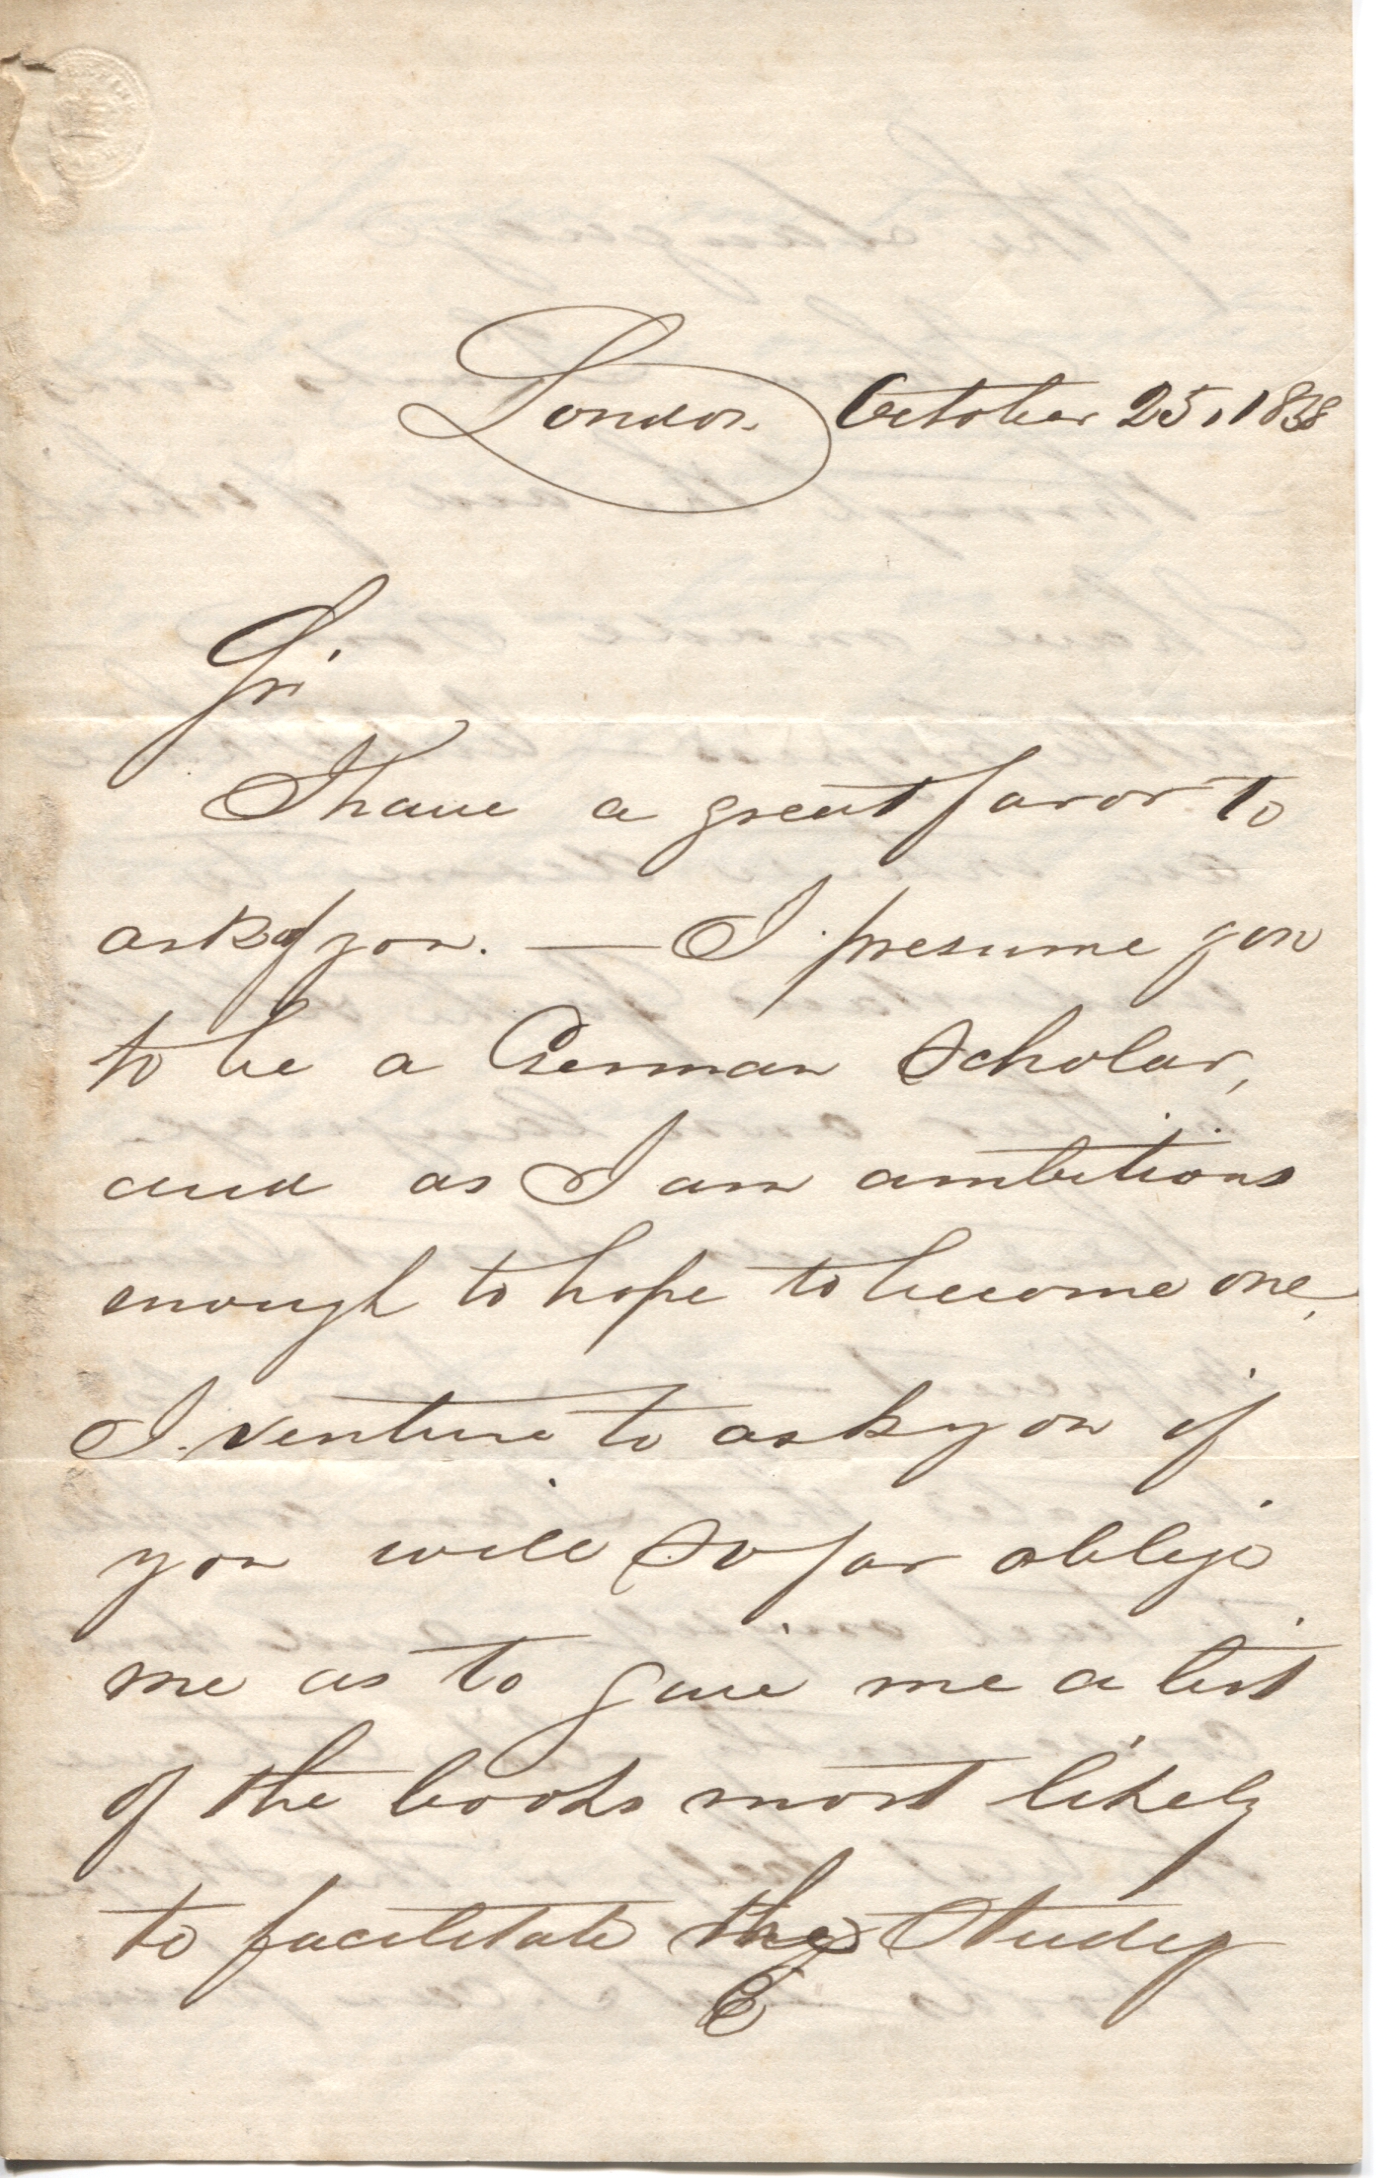 London October 25, 1838
Sir
I have a great favor to
ask of you. — I presume you
to be a German Scholar,
and as I am ambitious
enough to hope to become one,
I venture to ask you if
you will so far oblige
me as to give me a list
of the books most likely
to facilitate the Study